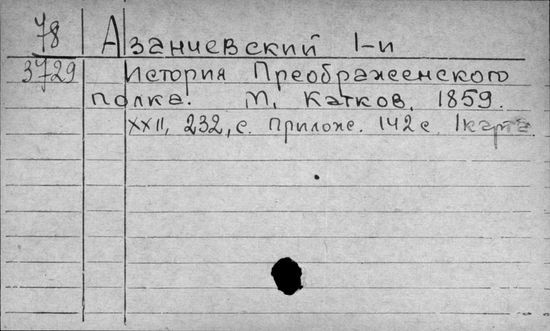 78 Азанчевский 1-й
3729 История Преображенского
полка. М. Катков. 1859.
XXII, 232, с. Прилож. 142 с. 1 карта